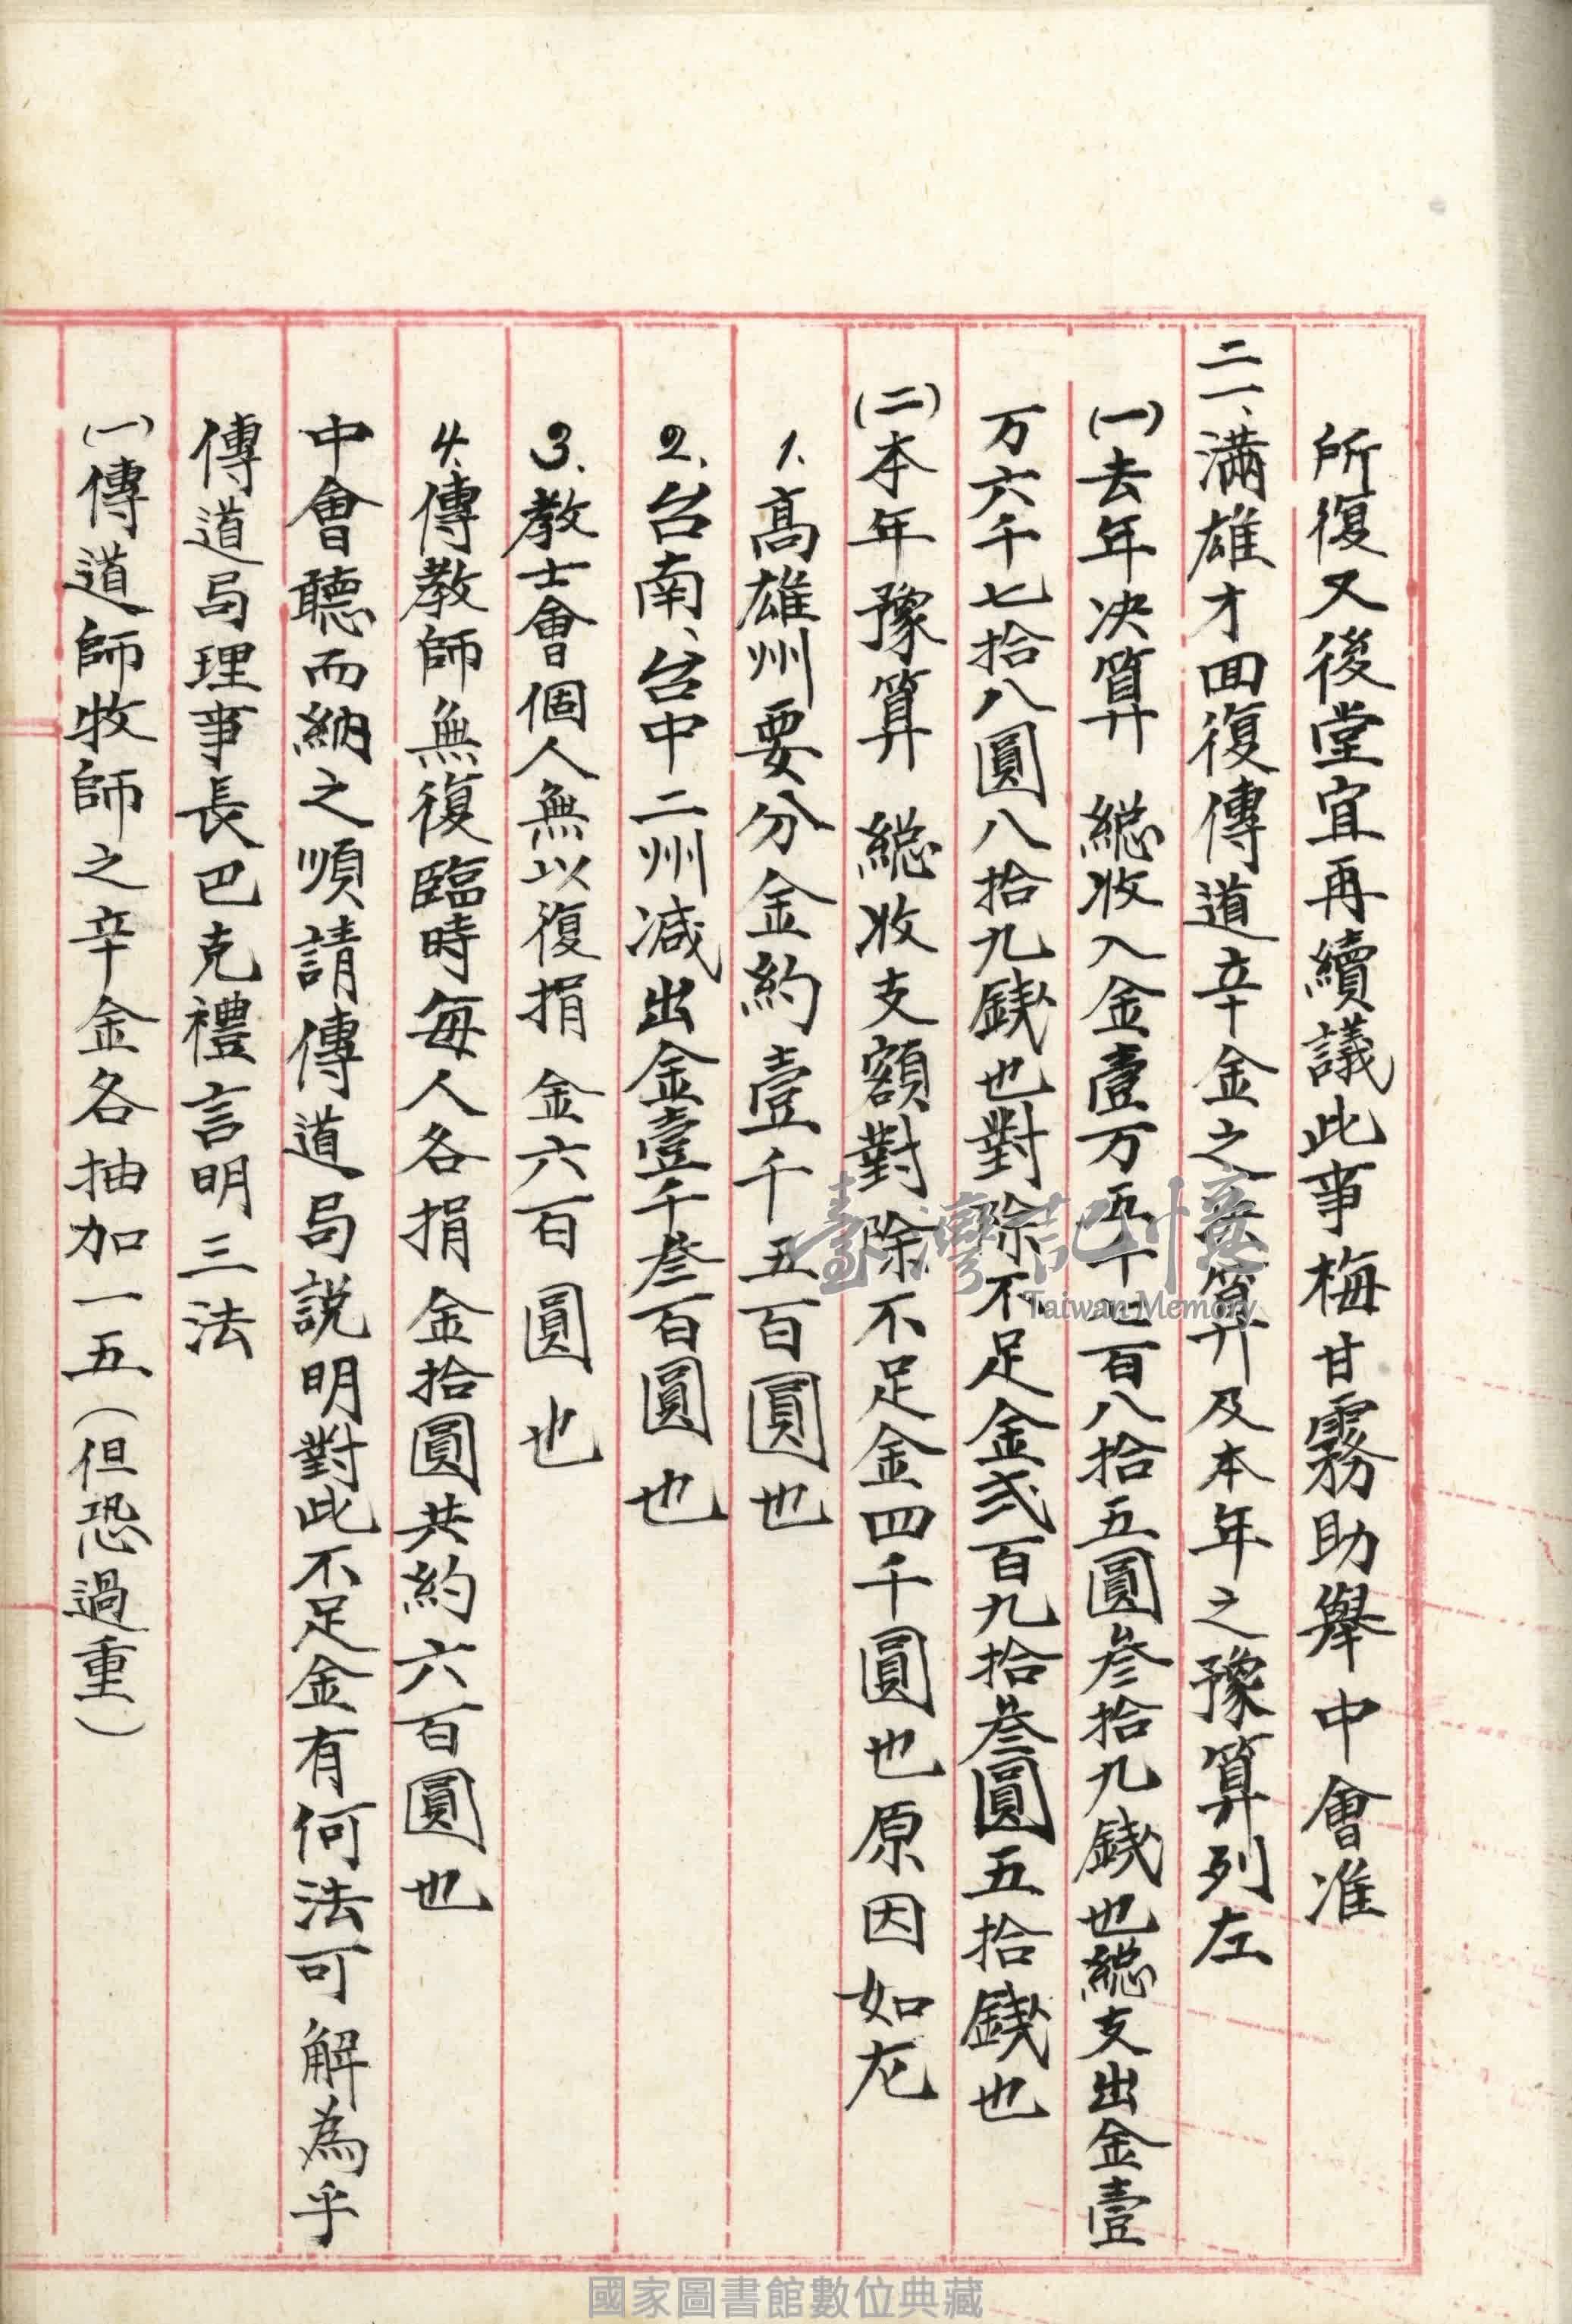 所復又後堂宜再續議此事梅甘霧助舉中會准
二一、满雄才回復傳道辛金之決算及本年之豫算列左
(一)去年决算　総收入金壹万五千七百八拾五圓叁拾九銭也総支出金壹
万六千七拾八圓八拾九銭也對除不足金弐百九拾叁圓五拾銭也
(二)本年豫算　総收支額對除不足金四千圓也原因如左
1.高雄州要分金約壹千五百圓也
2、台南、台中二州减出金壹千叁百圓也
3.教士會個人無以復捐金六百圓也
4.傳教師無復臨時每人各捐金拾圓共約六百圓也
中會聽而納之順請傳道局説明對此不足金有何法可解為乎
傳道局理事長巴克禮言明三法
(一)傳道師牧師之辛金各抽加一五(但恐過重)
臺灣記憶
Taiwan Memory
國家圖書館數位典藏